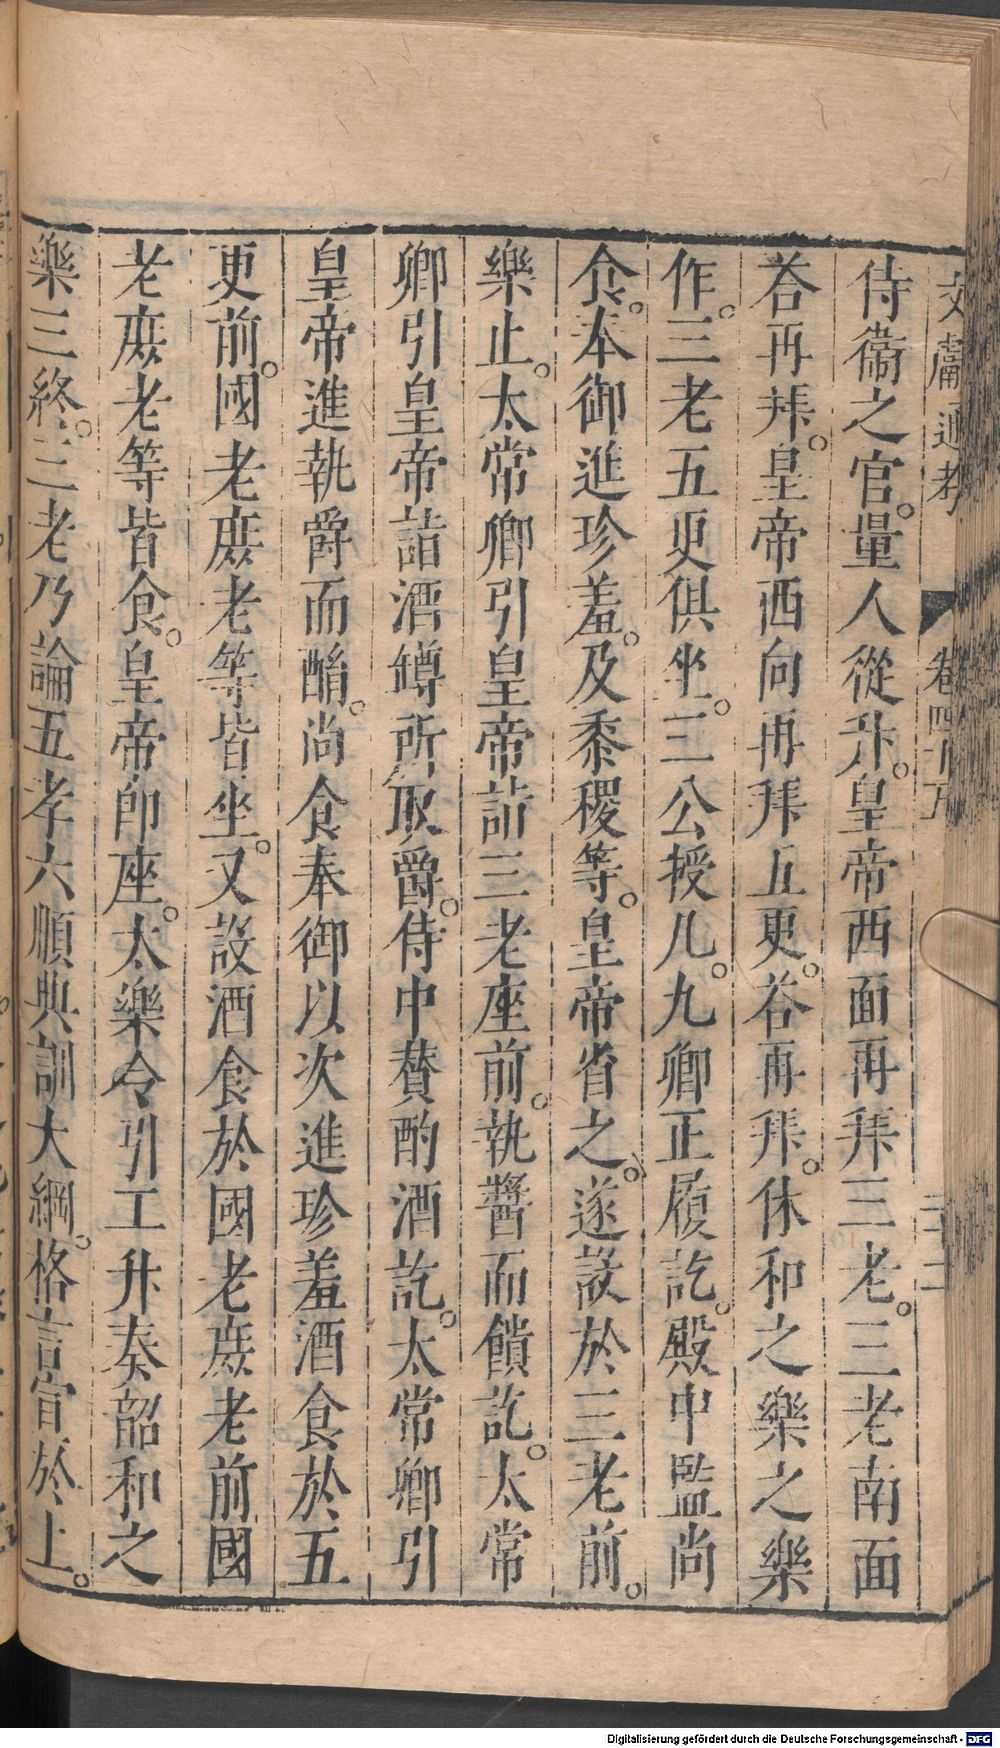 侍衞之官。量人從升。皇帝西面再拜三老。三老南面
荅再拜。皇帝西向再拜五更。荅再拜。休和之樂之樂
作。三老五更俱坐。三公授几。九卿正履訖。殿中監尚
食。奉御進珍羞。及黍稷等。皇帝省之。遂設於三老前。
樂止。太常卿引皇帝詣三老座前。執醬而饋訖。太常
卿引皇帝詣酒罇所取爵。侍中賛酌酒訖。太常卿引
皇帝進執爵而酳。尚食奉御以次進珍羞酒食於五
更前。國老庶老等皆坐。又設酒食於國老庶老前國
老庶老等皆食。皇帝卽座。太樂令引工升奏韶和之
樂三終。三老乃論五孝六順典訓大綱。格言宣於上。
文處通考 卷四十 二十二
Digitalisierung gefördert durch die Deutsche Forschungsgemeinschaft - DFG